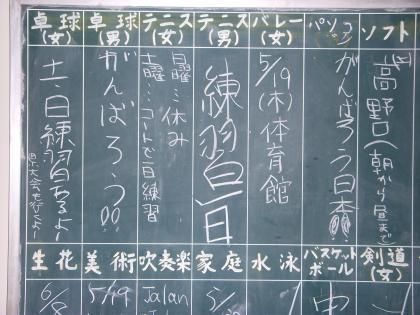 卓球(女)
土・日練習あるよー
県大会も近くよー
卓球(男)
がんばろう!!
テニス(女)
土曜…コートで一日練習
日曜…休み
テニス(男)
練習
一日
バレー(女)
5/19(木)体育館
パソコン
がんばろう日本!!
ソフト(女)
高野口(朝から昼まで)
生花
6/8
美術
5/19
吹奏楽
Jalan
家庭
5/
水泳
バスケットボール
中
剣道(女)